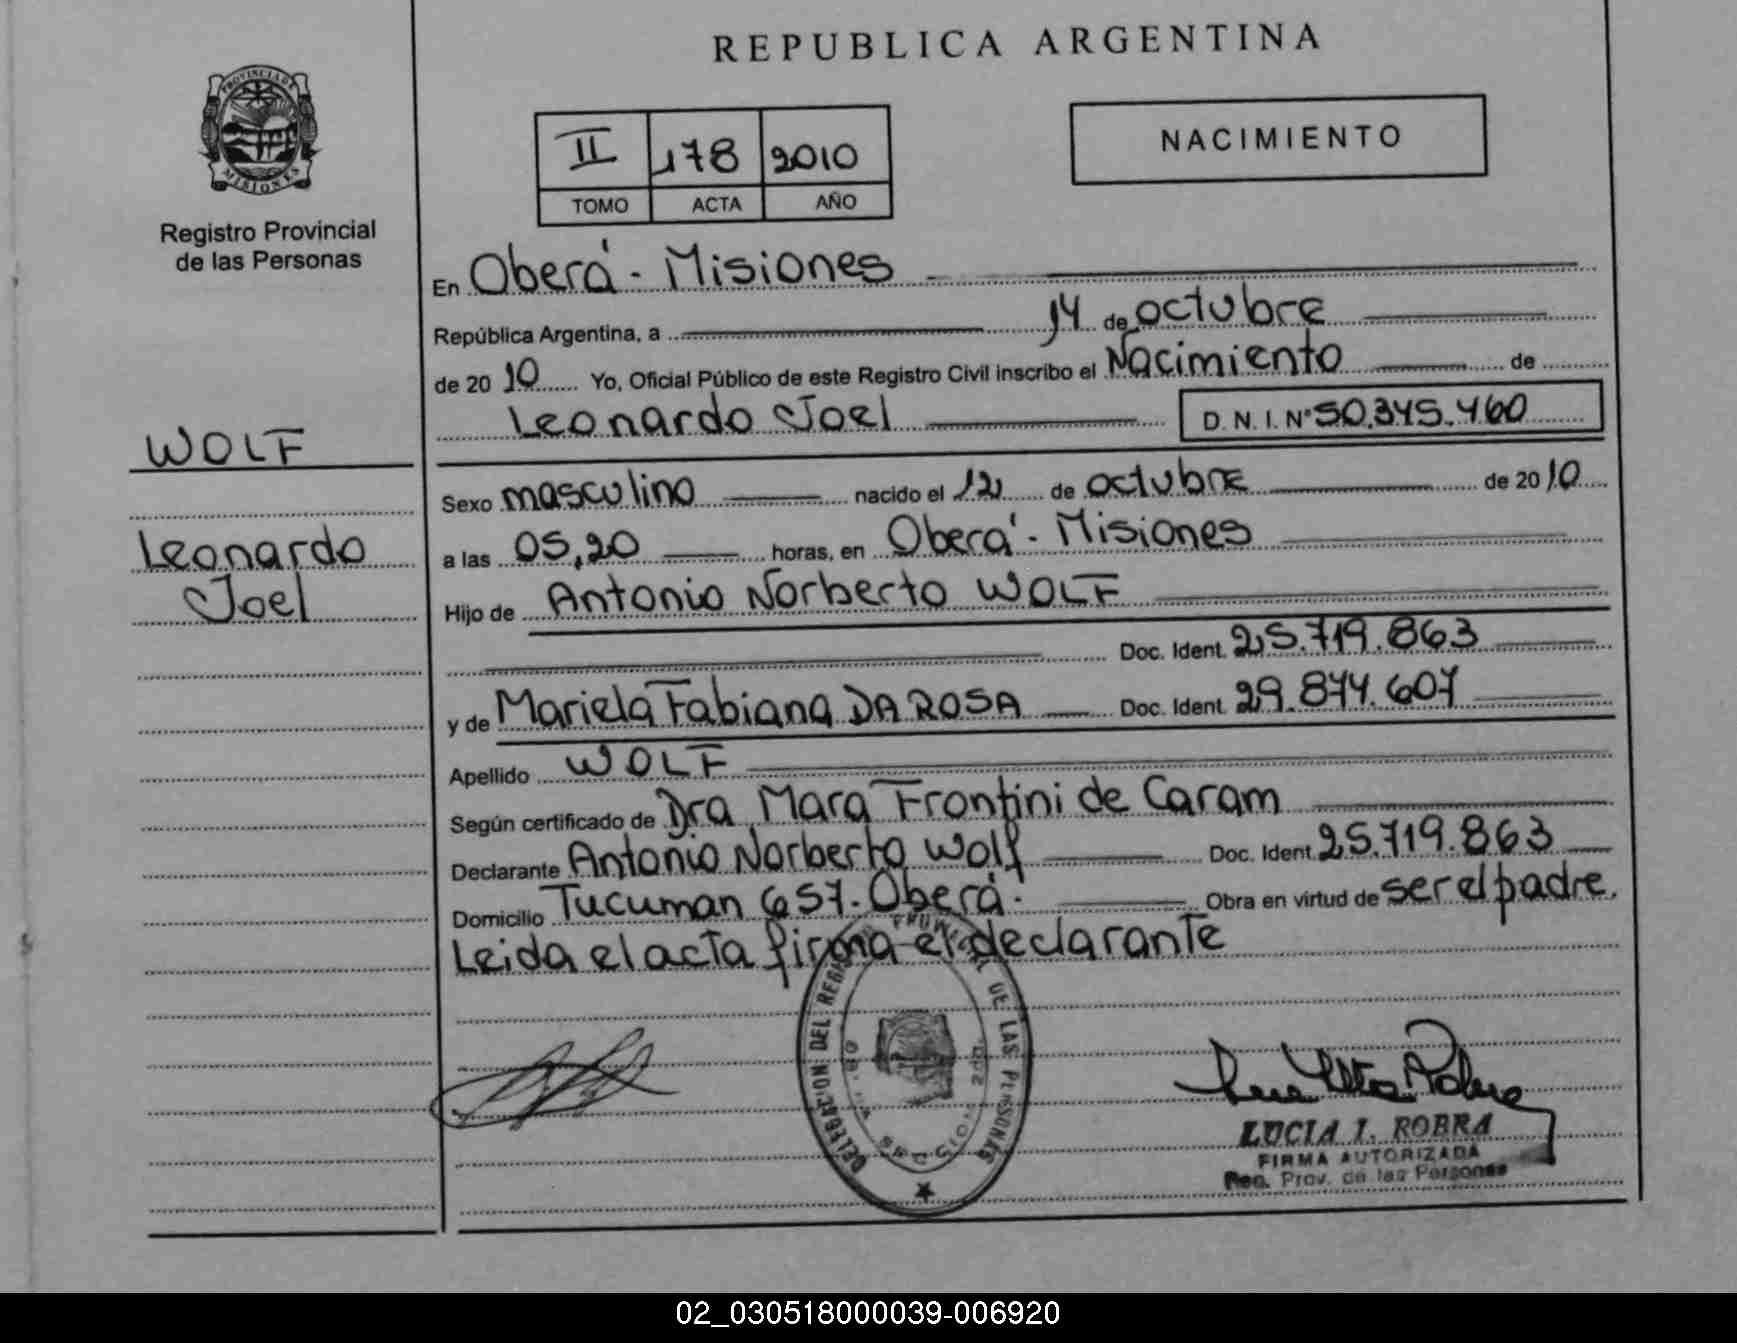 REPUBLICA ARGENTINA
PROVINCIA DE
MISIONES
Registro Provincial
de las Personas
II 178 2010
TOMO ACTA AÑO
NACIMIENTO
WOLF
Leonardo
Joel
En Oberá - Misiones
República Argentina, a 14 de octubre
de 2010 Yo, Oficial Público de este Registro Civil inscribo el Nacimiento de
Leonardo Joel D. N. I. Nº 50.345.460
Sexo masculino nacido el 12 de octubre de 2010
a las 05,20 horas, en Oberá - Misiones
Hijo de Antonio Norberto WOLF
Doc. Ident. 25.719.863
y de Mariela Fabiana DA ROSA Doc. Ident. 29.874.607
Apellido WOLF
Según certificado de Dra Mara Frontini de Caram
Declarante Antonio Norberto Wolf Doc. Ident. 25.719.863
Domicilio Tucuman 657. Oberá. Obra en virtud de ser el padre.
Leida el acta firma el declarante
DELEGACION DEL DE LAS PERSONAS
LUCIA I. ROBRA
FIRMA AUTORIZADA
Reg. Prov. de las Personas
02_030518000039-006920